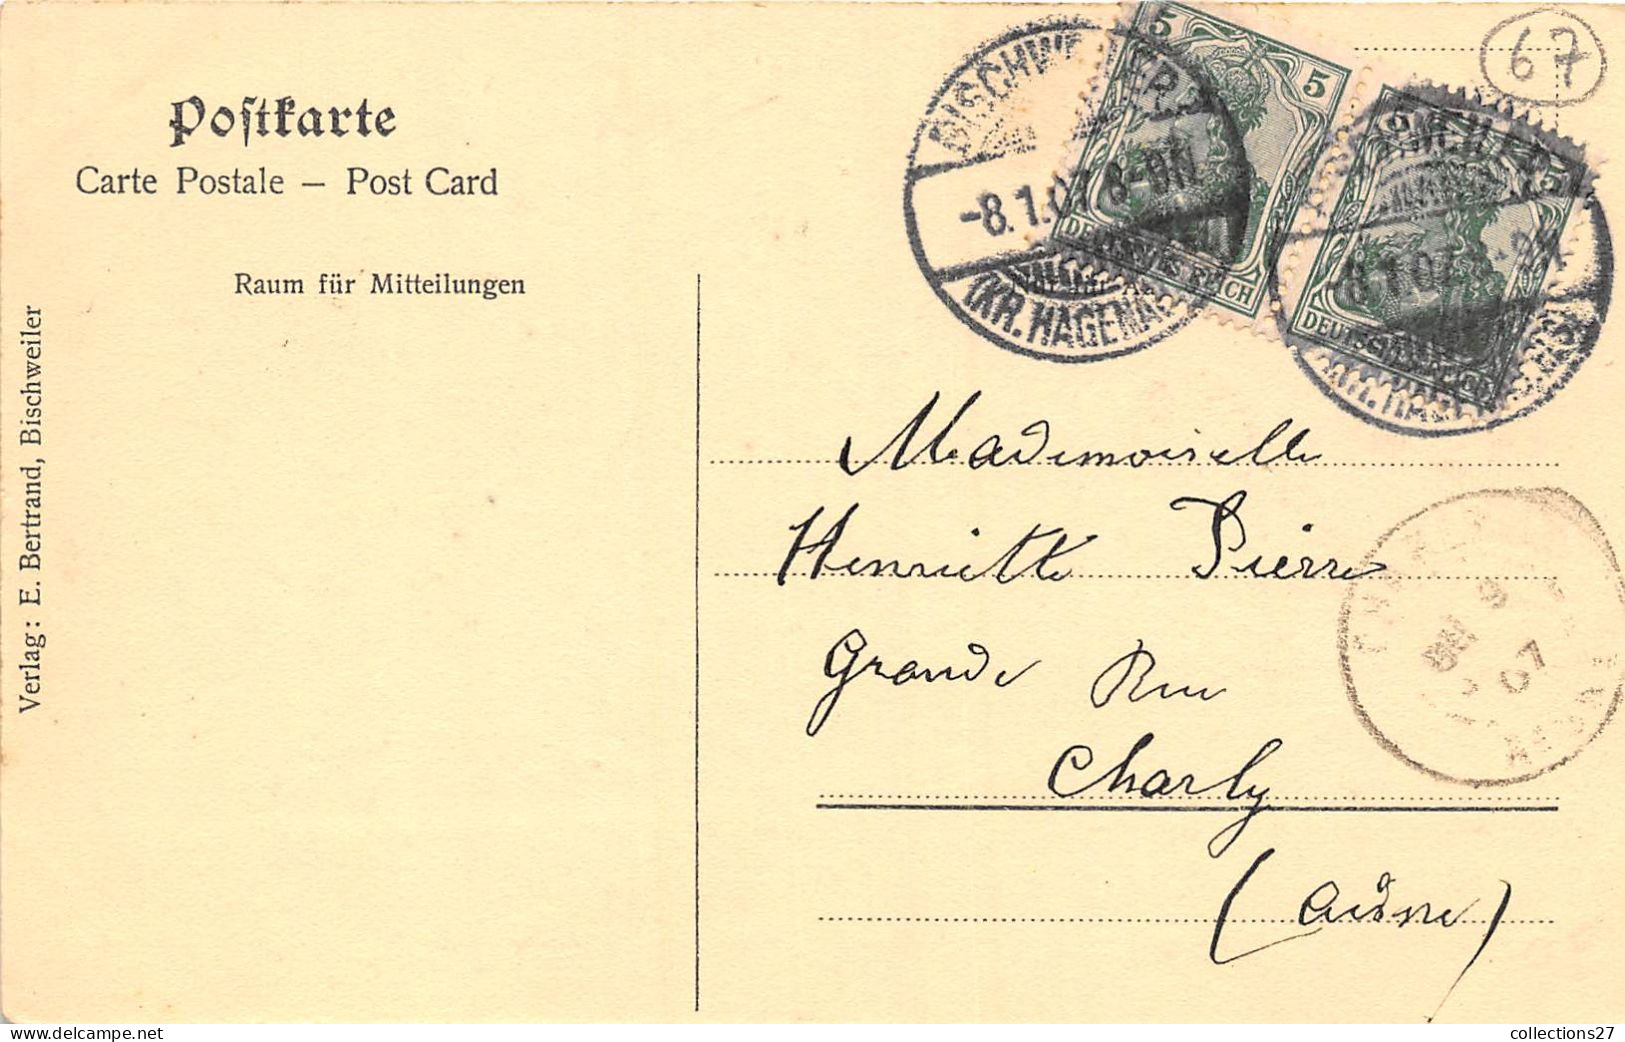 Postkarte
Carte Postale – Post Card
Raum für Mitteilungen
Verlag: E. Bertrand, Bischweiler
67
5
5
DEUTSCHES REICH
5
DEUTSCHES REICH
BISCHWEILER
-8.1.07. 8-9N
(KR. HAGENAU
8.1.07
Mademoiselle
Henriette Pierre
Grande Rue
Charly
(Aisne)
9
07
collections27